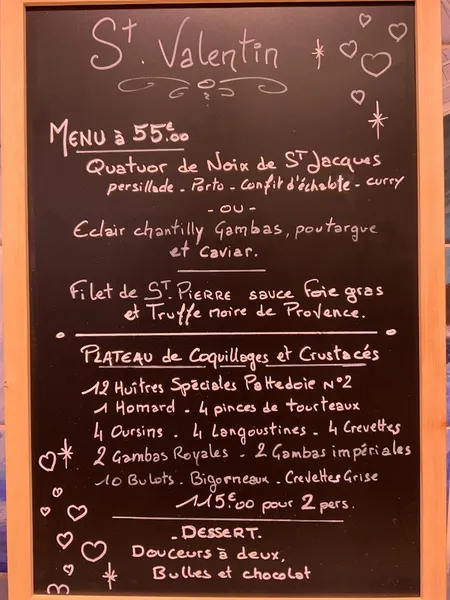 St. Valentin
Menu à 55€.00
Quatuor de Noix de St Jacques
persillade - Porto - Confit d'échalote - curry
- OU -
Eclair chantilly Gambas, poutargue
et Caviar.
Filet de St. Pierre sauce Foie gras
et Truffe noire de Provence.
Plateau de Coquillages et Crustacés
12 Huîtres Spéciales Pattedoie N°2
1 Homard - 4 pinces de tourteaux
4 Oursins - 4 Langoustines - 4 Crevettes
2 Gambas Royales - 2 Gambas impériales
10 Bulots - Bigorneaux - Crevettes Grise
115€.00 pour 2 pers.
- Dessert.
Douceurs à deux,
Bulles et chocolat